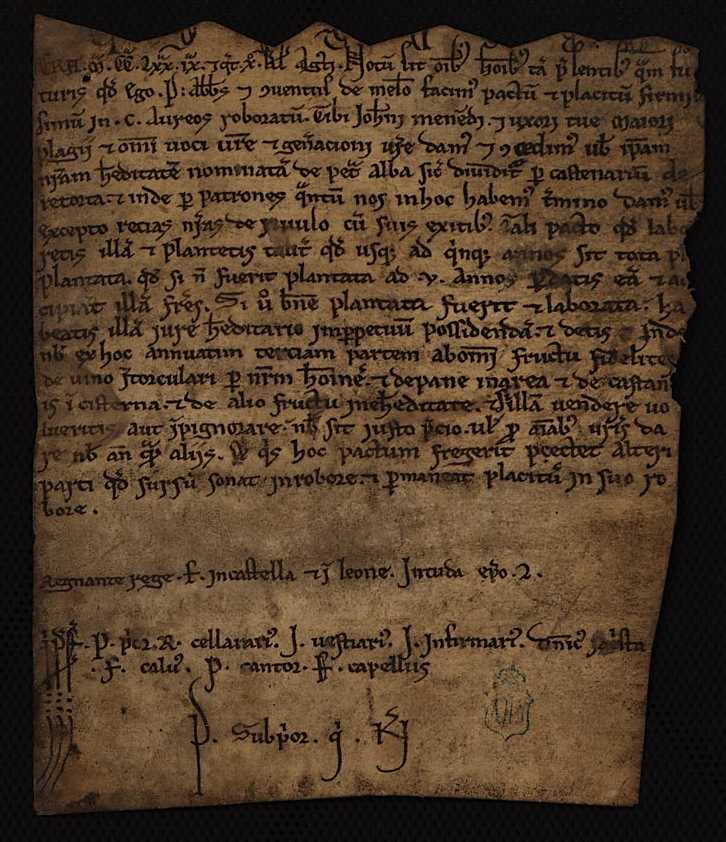 ERA . M̃ . CC̃ . LXX . IX . Notū sit oīb; hoīb; tā p̄sentib; q̄m fu
turis qd̄ Ego . P : abb̄s ⁊ ꝯventus de melō facim; pactū & placitū firmis
simū in . C . Aureos roboratū . Tibi Ioh̄ni menēdi . ⁊ uxori tue Maiori
plagii & omī voci vr̄e & gen̄acioni vr̄e dam; ⁊ ꝯcedim; vb̄ ip̄am
nr̄am h̄editatē nominatā de pet̄ alba sic̄ dividit̄ ꝑ castenariū de
retorta . & inde ꝑ patrones q̄ntū nos in hoc habem; t̄mino dam; vb̄
excepto recias nr̄as de rivulo cū suis exitib; . Tali pacto qd̄ labo
retis illā & plantetis taut̄ qd̄ usq; ad q̄nq; annos sit tota pl
plantata . qd̄ si n̄ fuerit plantata ad v . annos ꝑdatis eā & ac
cipiāt illā fr̄es . Si v̊ bn̄e plantata fuerit & laborata : ha
beatis illā iure h̄editario imꝑpetuū possidendā : & detis inde
nb̄ ex hoc annuatim terciam partem ab omī fructu fidelite
de vino ī torculari ꝑ nr̄m hoīnē . & de pane in area & de castan̄
is ī cisterna . & de alio fructu in eh̄editate . & si illā vender̄e vo
lueritis aut īpignorare . nb̄ sit iusto p̄cio . vl̄ ꝓ aīab; vr̄is da
re nb̄ an̄ q̄ꝑ aliis . & q̄s hoc pactum fregerit pectet alteri
parti qd̄ sursū sonat in robore . & ꝑmaneat placitū in suo ro
bore .
Regnante rege . f . in castella & ī leone . In tuda ep̄o . L .
P . p̄or . R . cellarari; . J . vestiari; . J . Infirmari; . Dn̄ic; sac̄sta
. F . calv; . P . cantor . F . capellus
P . Subp̄or . q̄